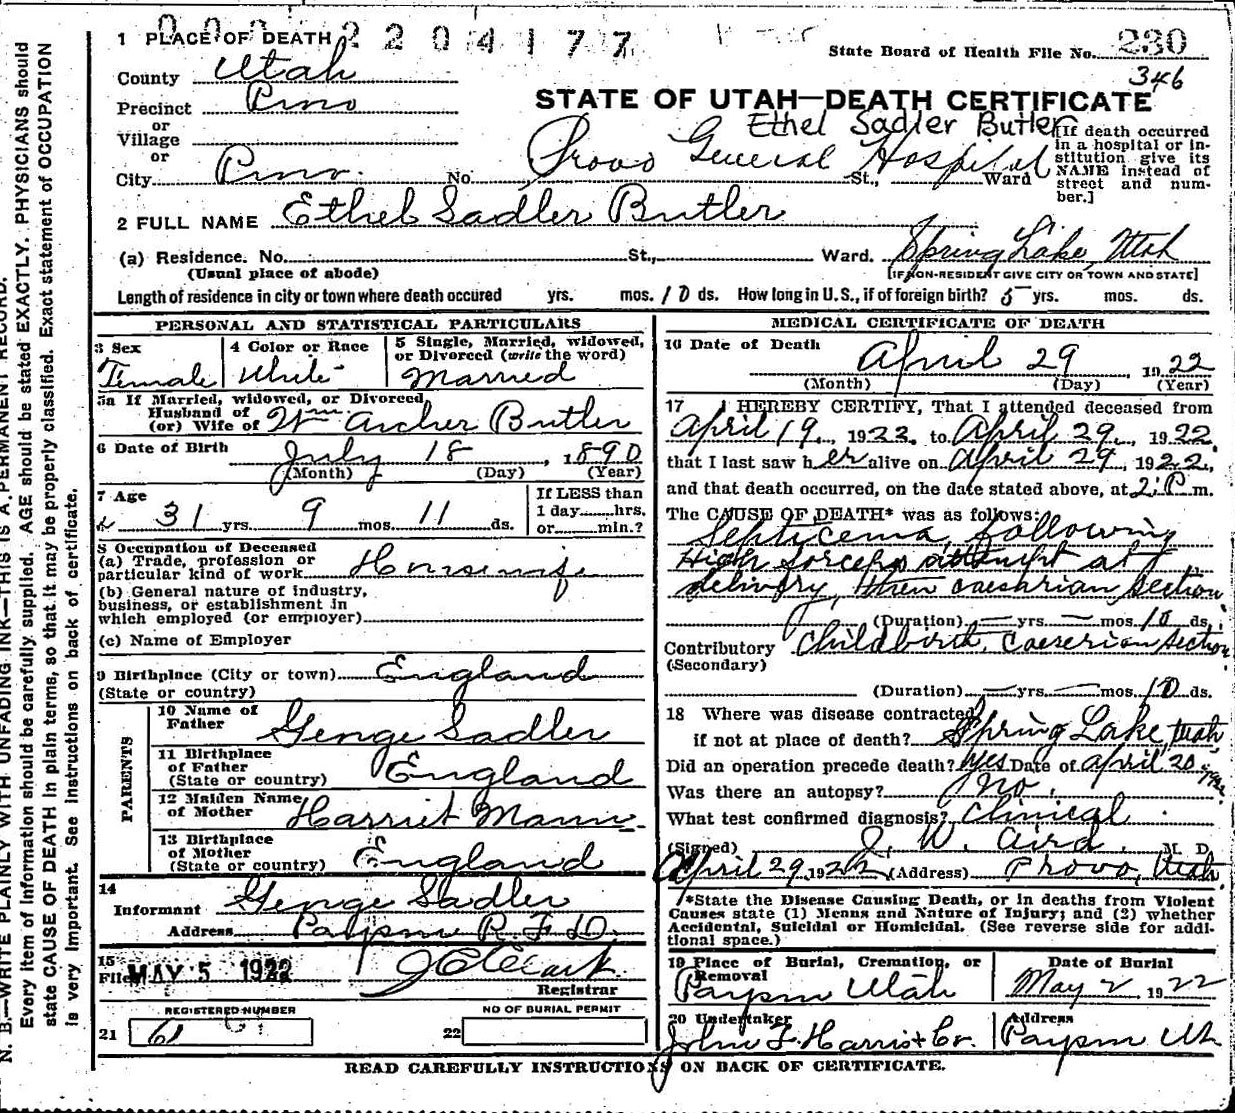 1 PLACE OF DEATH 2204177
State Board of Health File No. 230
346
County Utah
Precinct Provo
or
Village
or
City Provo No. Provo General Hospital St., Ward
STATE OF UTAH—DEATH CERTIFICATE
Ethel Sadler Butler
[If death occurred in a hospital or institution give its NAME instead of street and number.]
2 FULL NAME Ethel Sadler Butler
(a) Residence. No. St., Ward. Spring Lake, Utah
(Usual place of abode) [IF NON-RESIDENT GIVE CITY OR TOWN AND STATE]
Length of residence in city or town where death occured yrs. mos. 10 ds. How long in U.S., if of foreign birth? 5 yrs. mos. ds.
PERSONAL AND STATISTICAL PARTICULARS
3 Sex Female
4 Color or Race White
5 Single, Married, widowed, or Divorced (write the word) Married
5a If Married, widowed, or Divorced,
Husband of
(or) Wife of Wm. Archer Butler
6 Date of Birth July 18, 1890
(Month) (Day) (Year)
7 Age 31 yrs. 9 mos. 11 ds.
If LESS than
1 day hrs.
or min.?
8 Occupation of Deceased
(a) Trade, profession or
particular kind of work Housewife
(b) General nature of industry,
business, or establishment in
which employed (or employer)
(c) Name of Employer
9 Birthplace (City or town) England
(State or country)
PARENTS
10 Name of Father George Sadler
11 Birthplace of Father England
(State or country)
12 Maiden Name of Mother Harriet Mann
13 Birthplace of Mother England
(State or country)
14
Informant George Sadler
Address Payson R. F. D.
15
Filed MAY 5 1922 J C Clark
Registrar
REGISTERED NUMBER
21 61
NO OF BURIAL PERMIT
22
MEDICAL CERTIFICATE OF DEATH
16 Date of Death April 29 1922
(Month) (Day) (Year)
17 I HEREBY CERTIFY, That I attended deceased from
April 19, 1922, to April 29, 1922,
that I last saw her alive on April 29, 1922,
and that death occurred, on the date stated above, at 2 P m.
The CAUSE OF DEATH* was as follows:
Septicema following
High forceps attempt at
delivery, then caesarian section
(Duration) — yrs. — mos. 10 ds.
Contributory Childbirth, Caeserian section
(Secondary)
(Duration) — yrs. — mos. 10 ds.
18 Where was disease contracted
if not at place of death? Spring Lake, Utah
Did an operation precede death? Yes Date of April 20, 1922
Was there an autopsy? No.
What test confirmed diagnosis? Clinical
(Signed) J. W. Aird. M. D.
April 29, 1922 (Address) Provo, Utah.
*State the Disease Causing Death, or in deaths from Violent
Causes state (1) Means and Nature of Injury; and (2) whether
Accidental, Suicidal or Homicidal. (See reverse side for addi-
tional space.)
19 Place of Burial, Cremation, or Removal Payson Utah
Date of Burial May 2 1922
20 Undertaker John F. Harris & Co.
Address Payson Ut
READ CAREFULLY INSTRUCTIONS ON BACK OF CERTIFICATE.
N. B.—WRITE PLAINLY WITH UNFADING INK—THIS IS A PERMANENT RECORD.
Every item of information should be carefully supplied. AGE should be stated EXACTLY. PHYSICIANS should
state CAUSE OF DEATH in plain terms, so that it may be properly classified. Exact statement of OCCUPATION
is very important. See instructions on back of certificate.